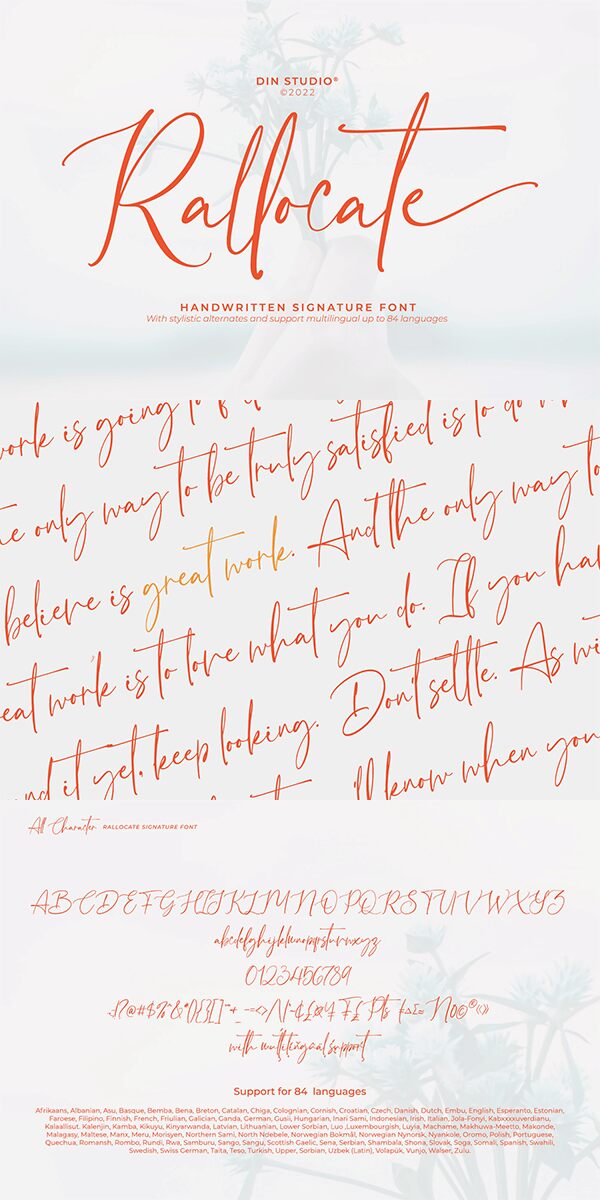 DIN STUDIO®
©2022
Rallocate
HANDWRITTEN SIGNATURE FONT
With stylistic alternates and support multilingual up to 84 languages
work is going to
the only way to be truly satisfied is to do
believe is great work. And the only way to
great work is to love what you do. If you
and it yet, keep looking. Don't settle. As
'll know when you
All Character RALLOCATE SIGNATURE FONT
ABCDEFGHIJKLMNOPQRSTUVWXYZ
abcdefghijklmnopqrstuvwxyz
0123456789
with multilingual support
Support for 84 languages
Afrikaans, Albanian, Asu, Basque, Bemba, Bena, Breton, Catalan, Chiga, Colognian, Cornish, Croatian, Czech, Danish, Dutch, Embu, English, Esperanto, Estonian,
Faroese, Filipino, Finnish, French, Friulian, Galician, Ganda, German, Gusii, Hungarian, Inari Sami, Indonesian, Irish, Italian, Jola-Fonyi, Kabxxxuverdianu,
Kalaallisut, Kalenjin, Kamba, Kikuyu, Kinyarwanda, Latvian, Lithuanian, Lower Sorbian, Luo ,Luxembourgish, Luyia, Machame, Makhuwa-Meetto, Makonde,
Malagasy, Maltese, Manx, Meru, Morisyen, Northern Sami, North Ndebele, Norwegian Bokmål, Norwegian Nynorsk, Nyankole, Oromo, Polish, Portuguese,
Quechua, Romansh, Rombo, Rundi, Rwa, Samburu, Sango, Sangu, Scottish Gaelic, Sena, Serbian, Shambala, Shona, Slovak, Soga, Somali, Spanish, Swahili,
Swedish, Swiss German, Taita, Teso, Turkish, Upper, Sorbian, Uzbek (Latin), Volapük, Vunjo, Walser, Zulu.